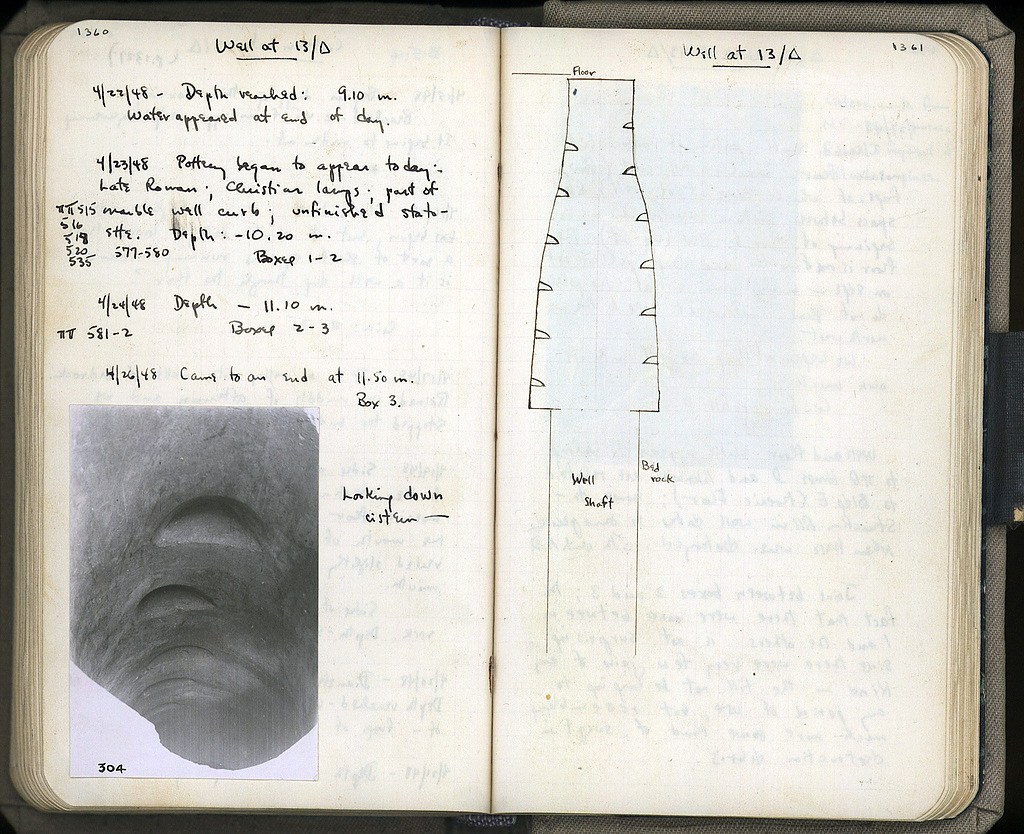 1360
Well at 13/Δ
4/22/48 - Depth reached: 9.10 m.
Water appeared at end of day.
4/23/48 Pottery began to appear today:
Late Roman; Christian lamps; part of
ΠΠ 515 marble well curb; unfinished statu-
516
518 ette. Depth: -10.20 m.
520 577-580 Boxes 1-2
535
4/24/48 Depth - 11.10 m.
ΠΠ 581-2 Boxes 2-3
4/26/48 Came to an end at 11.50 m.
Box 3.
Looking down
cistern —
304
Well at 13/Δ
1361
Floor
Bed
rock
Well
Shaft